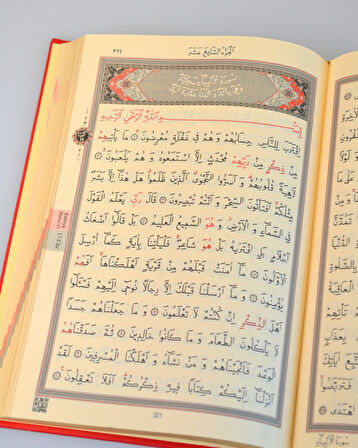 اَلْجُزْءُ السَّابِعَ عَشَرَ
٣٢١
سُورَةُ الْاَنْبِيَاءِ مَكِّيَّةٌ
بِسْمِ اللّٰهِ الرَّحْمٰنِ الرَّحِيمِ
اِقْتَرَبَ لِلنَّاسِ حِسَابُهُمْ وَهُمْ فِى غَفْلَةٍ مُعْرِضُونَ ۞ مَا يَأْتِيهِمْ
مِنْ ذِكْرٍ مِنْ رَبِّهِمْ مُحْدَثٍ اِلَّا اسْتَمَعُوهُ وَهُمْ يَلْعَبُونَ ۞
لَاهِيَةً قُلُوبُهُمْ وَاَسَرُّوا النَّجْوَى الَّذِينَ ظَلَمُوا هَلْ هٰذَا اِلَّا بَشَرٌ
مِثْلُكُمْ اَفَتَأْتُونَ السِّحْرَ وَاَنْتُمْ تُبْصِرُونَ ۞ قَالَ رَبِّى يَعْلَمُ الْقَوْلَ
فِى السَّمَاءِ وَالْاَرْضِ وَهُوَ السَّمِيعُ الْعَلِيمُ ۞ بَلْ قَالُوا اَضْغَاثُ
اَحْلَامٍ بَلِ افْتَرٰيهُ بَلْ هُوَ شَاعِرٌ فَلْيَأْتِنَا بِاٰيَةٍ كَمَا اُرْسِلَ
الْاَوَّلُونَ ۞ مَا اٰمَنَتْ قَبْلَهُمْ مِنْ قَرْيَةٍ اَهْلَكْنَاهَا اَفَهُمْ
يُؤْمِنُونَ ۞ وَمَا اَرْسَلْنَا قَبْلَكَ اِلَّا رِجَالًا نُوحِى اِلَيْهِمْ فَسْـَٔلُوا
اَهْلَ الذِّكْرِ اِنْ كُنْتُمْ لَا تَعْلَمُونَ ۞ وَمَا جَعَلْنَاهُمْ جَسَدًا
لَا يَأْكُلُونَ الطَّعَامَ وَمَا كَانُوا خَالِدِينَ ۞ ثُمَّ صَدَقْنَاهُمُ
الْوَعْدَ فَاَنْجَيْنَاهُمْ وَمَنْ نَشَاءُ وَاَهْلَكْنَا الْمُسْرِفِينَ ۞ لَقَدْ
اَنْزَلْنَا اِلَيْكُمْ كِتَابًا فِيهِ ذِكْرُكُمْ اَفَلَا تَعْقِلُونَ ۞
321